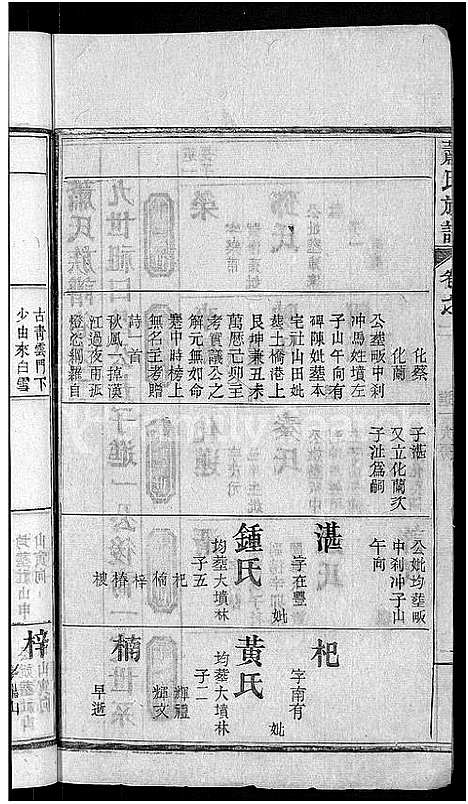 蕭氏族譜
卷之
化蔡
化蘭
公塟畈中刹
冲馬姓墳左
子山午向有
碑陳妣塟本
宅社山田妣
塟土橋港上
艮坤兼丑未
萬厯己卯主
考賀議公之
解元無如命
蹇中時榜上
無名主考贈
詩一首
秋風一掉漢
江過夜雨孤
燈
子湛
又立化蘭次
子沚爲嗣
公妣均塟畈
中刹冲子山
午向
湛
字在豐
妣
鍾氏
均塟大墳林
子五
杞
楠
梓
椿
樓
杞
字南有
妣
黄氏
均塟大墳林
子二
輝禮
輝文
楠
早逝
梓
古青雲門下
少由來白雪